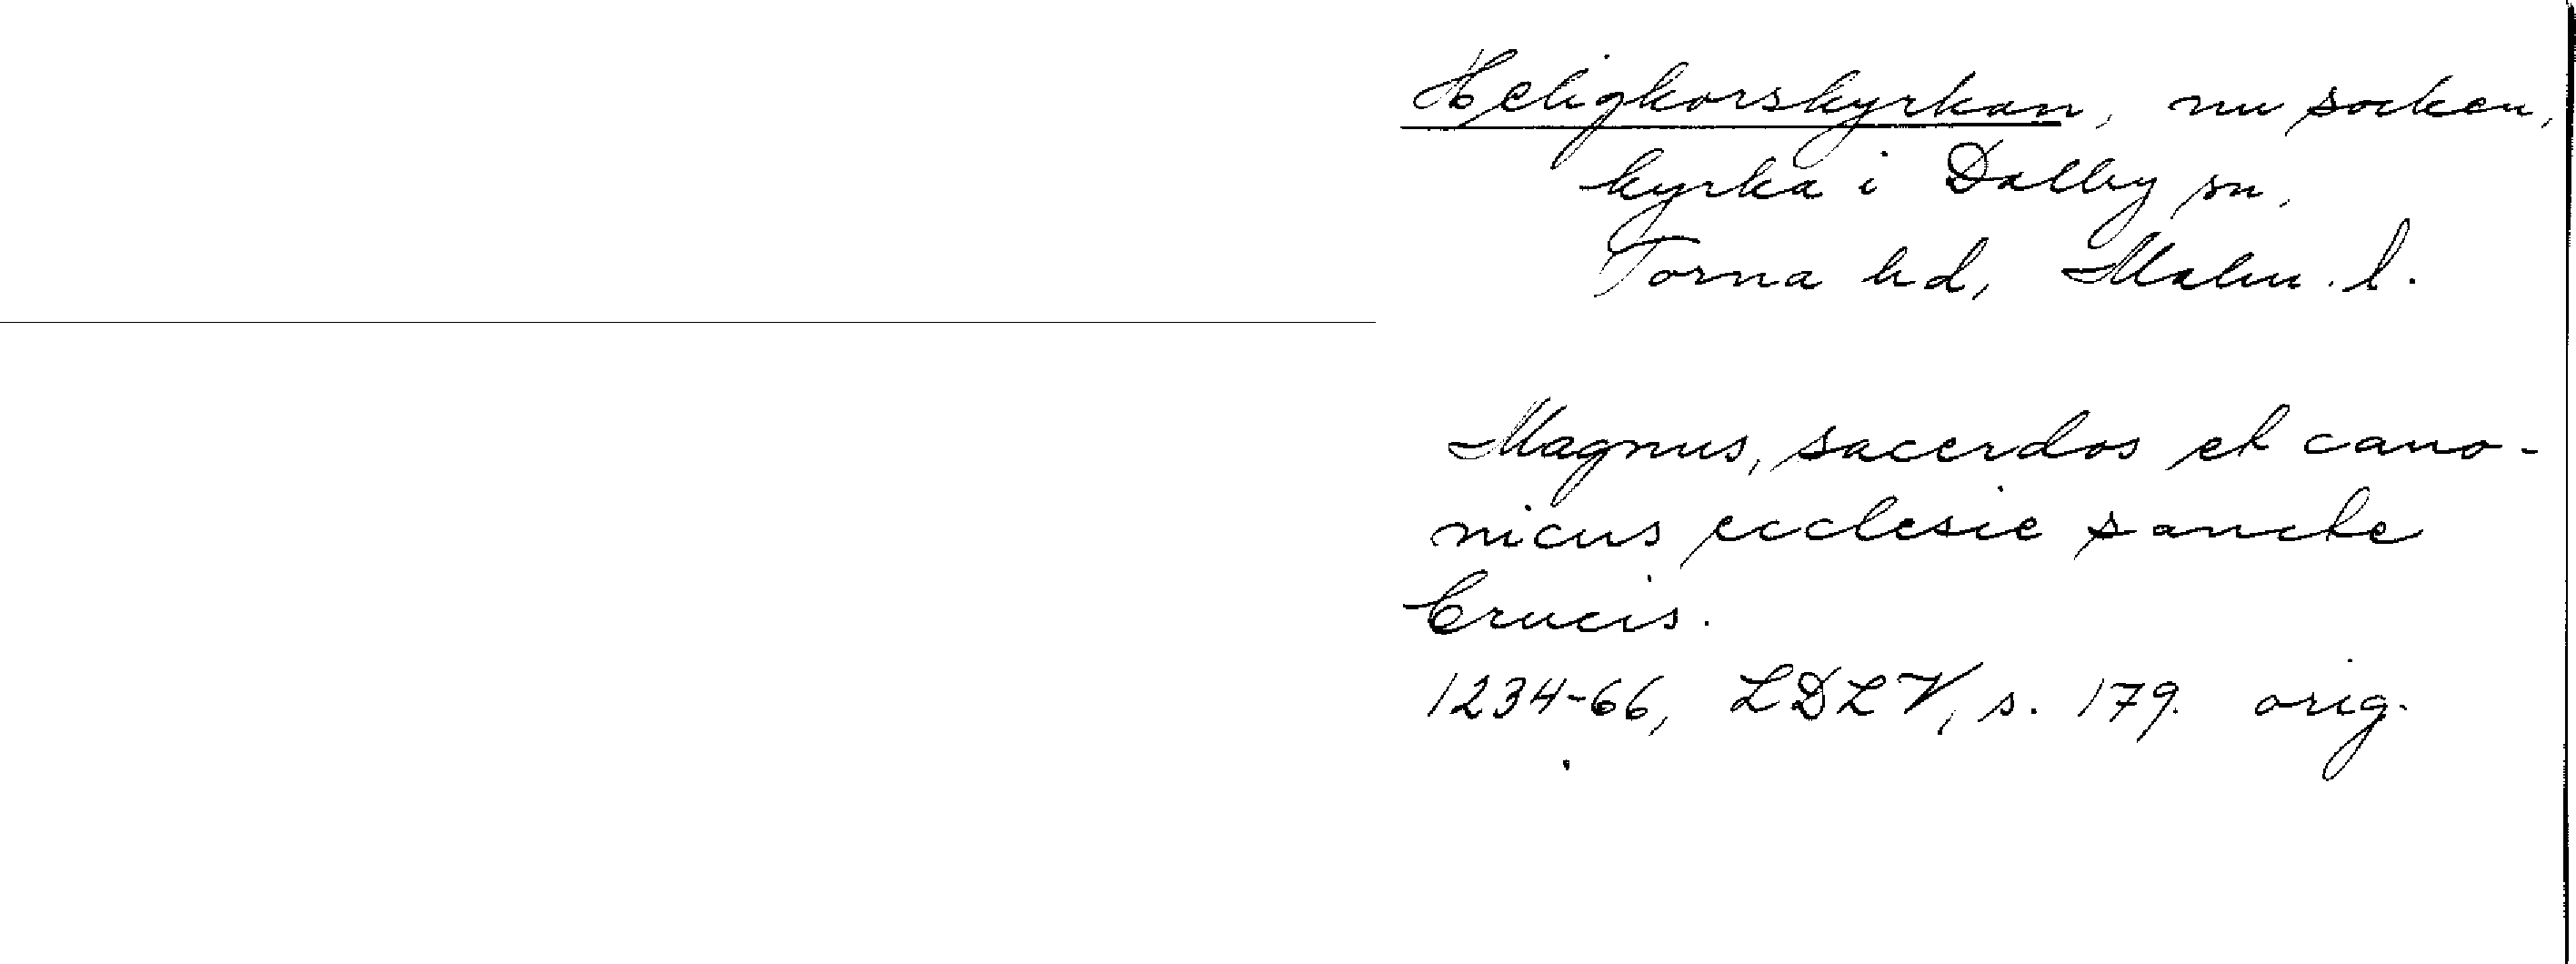 Heligkorskyrkan, nu socken,
kyrka i Dalby sn,
Torna hd, Malm. l.
Magnus, sacerdos et cano-
nicus ecclesie sancte
Crucis.
1234-66, LDLV, s. 179. orig.